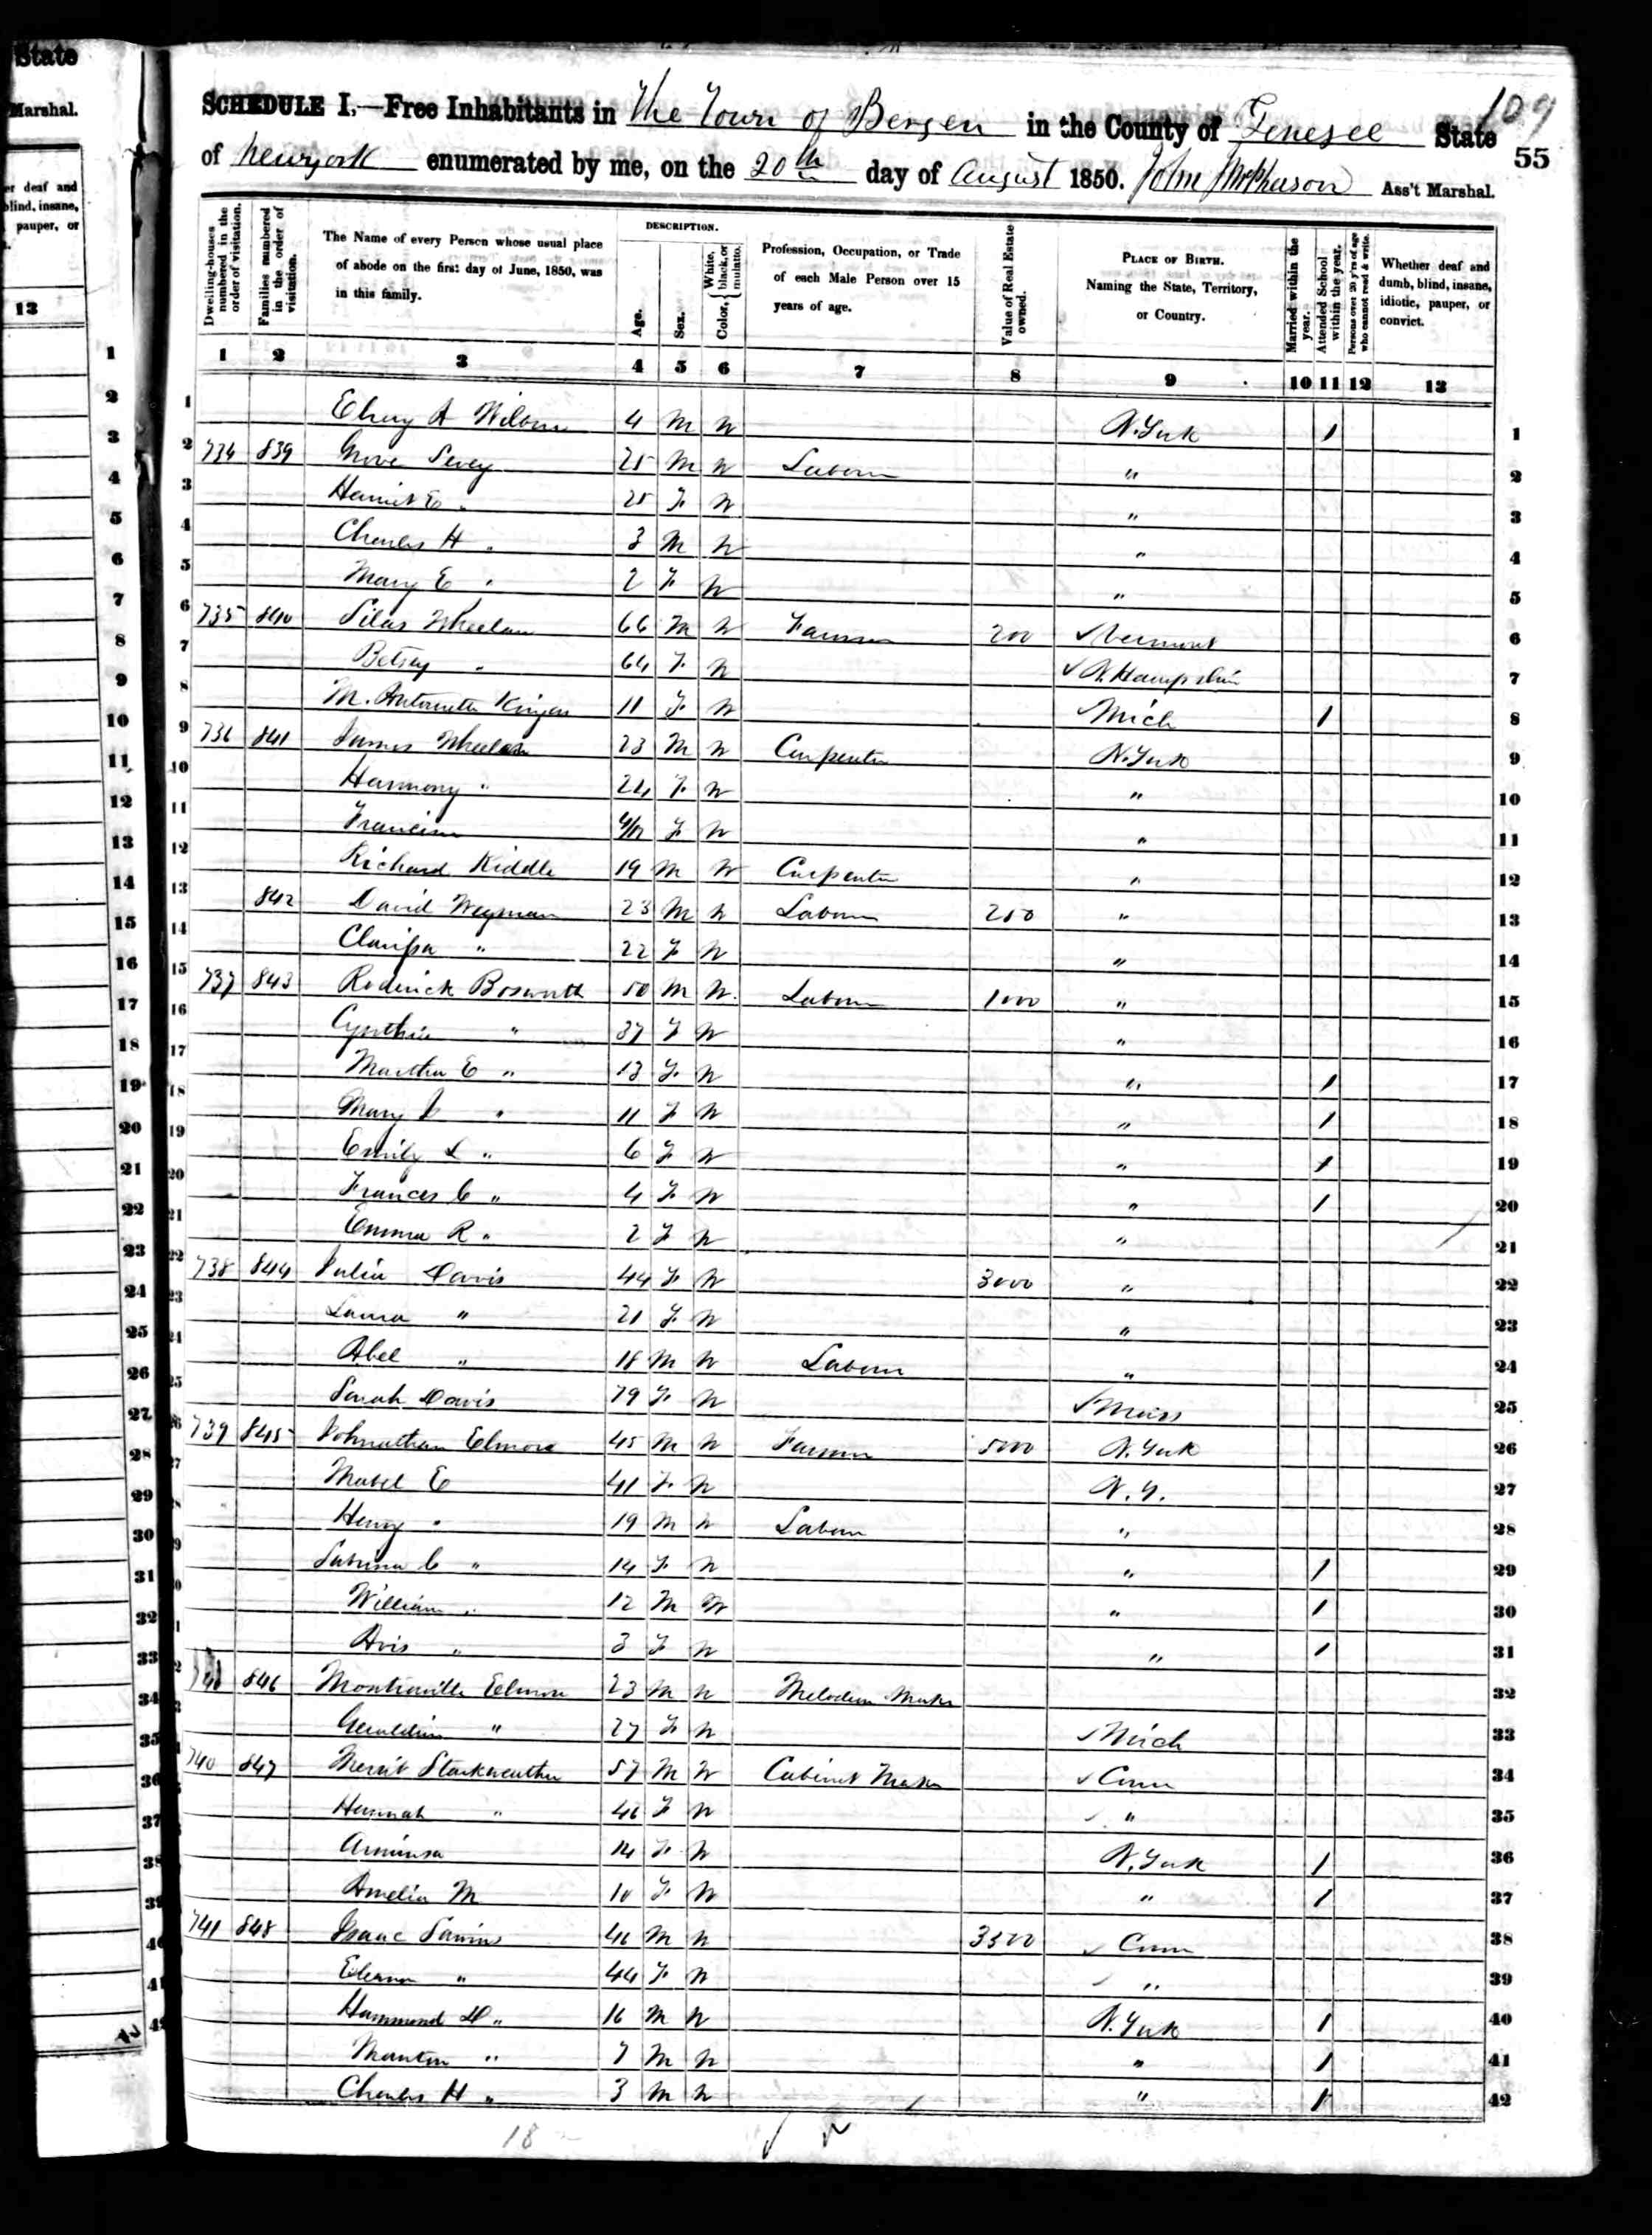 State
Marshal.
er deaf and
blind, insane,
pauper, or
13
109
SCHEDULE I.—Free Inhabitants in The Town of Bergen in the County of Genesee State
of Newyork enumerated by me, on the 20th day of August 1850. John McPherson Ass't Marshal.
55
Dwelling-houses numbered in the order of visitation.
Families numbered in the order of visitation.
The Name of every Person whose usual place of abode on the first day of June, 1850, was in this family.
DESCRIPTION.
Age.
Sex.
Color, White, black, or mulatto.
Profession, Occupation, or Trade of each Male Person over 15 years of age.
Value of Real Estate owned.
PLACE OF BIRTH. Naming the State, Territory, or Country.
Married within the year.
Attended School within the year.
Persons over 20 y'rs of age who cannot read & write.
Whether deaf and dumb, blind, insane, idiotic, pauper, or convict.
1 2 3 4 5 6 7 8 9 10 11 12 13
1 A 4 M W N.York 1 1
2 734 839 25 M W Laborer " 2
3 Harriet E " 25 F W " 3
4 Charles H " 3 M W " 4
5 Mary E " 2 F W " 5
6 735 840 Silas Wheelan 66 M W Farmer 200 ✓ Vermont 6
7 Betsey " 64 F W ✓ N.Hampshire 7
8 M. Antonette 11 F W ✓ Mich 1 8
9 736 841 James Wheelan 23 M W Carpenter N.York 9
10 Harmony " 24 F W " 10
11 F W " 11
12 Richard Kiddle 19 M W Carpenter " 12
13 842 David Wegman 23 M W Laborer 250 " 13
14 Clarissa " 22 F W " 14
15 737 843 Roderick Bosworth 50 M W Laborer 1000 " 15
16 Cynthia " 37 F W " 16
17 Martha E " 13 F W " 1 17
18 Mary J " 11 F W " 1 18
19 Emily L " 6 F W " 1 19
20 Frances C " 4 F W " 1 20
21 Emma R " 2 F W " 21
22 738 844 Julia Davis 44 F W 3000 " 22
23 Laura " 21 F W " 23
24 Abel " 18 M W Laborer " 24
25 Sarah Davis 79 F W ✓ Mass 25
26 739 845 Johnathan Elmore 45 M W Farmer 5000 N.York 26
27 Mabel E 41 F W N.Y. 27
28 Henry " 19 M W Laborer " 28
29 Sabrina C " 14 F W " 1 29
30 William " 12 M W " 1 30
31 Avis " 3 F W " 1 31
32 846 Montraville Elmore 23 M W Melodeon Maker 32
33 Geraldine " 27 F W ✓ Mich 33
34 740 847 Merrit Starkweather 57 M W Cabinet Maker ✓ Conn 34
35 Hannah " 46 F W ✓ " 35
36 Arminsa 14 F W N.York 1 36
37 Amelia M 10 F W " 1 37
38 741 848 Isaac 46 M W 3500 ✓ Conn 38
39 Eleanor " 44 F W ✓ " 39
40 Hammond D " 16 M W N.York 1 40
41 " 7 M W " 1 41
42 Charles H " 3 M W " 1 42
18